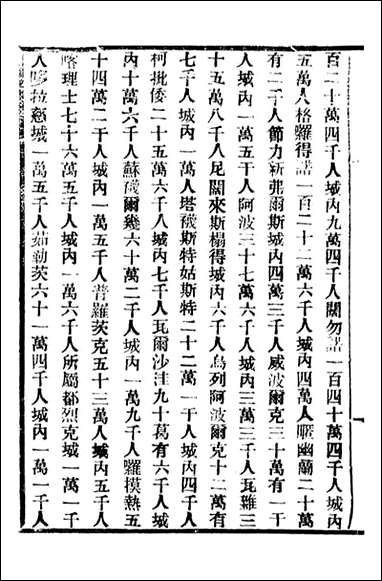 百二十萬四千人城內九萬四千人關勿諾一百四十萬四千人城內
五萬人格羅得諾一百二十二萬六千人城內四萬人腮幽蘭二十萬
有二千人節力新弗爾斯城內四萬三千人威波爾克三十萬有一千
人城內一萬五千人阿波三十七萬六千人城內三萬三千人瓦雜三
十五萬八千人尼闊來斯榻得城內六千人烏列阿波爾克十二萬有
七千人城內一萬人塔襪斯特姑斯特二十二萬一千人城內四千人
柯批倭二十五萬六千人城內七千人瓦爾沙洼九十萬有六千人城
內十萬六千人蘇襪爾幾六十萬二千人城內一萬九千人羅摸熱五
十四萬二千人城內一萬五千人普羅茨克五十三萬人城內五千人
喀理士七十六萬五千人城內一萬六千人所屬都烈克城一萬一千
人哆拉慈城一萬五千人茹勒茨六十一萬四千人城內一萬一千人